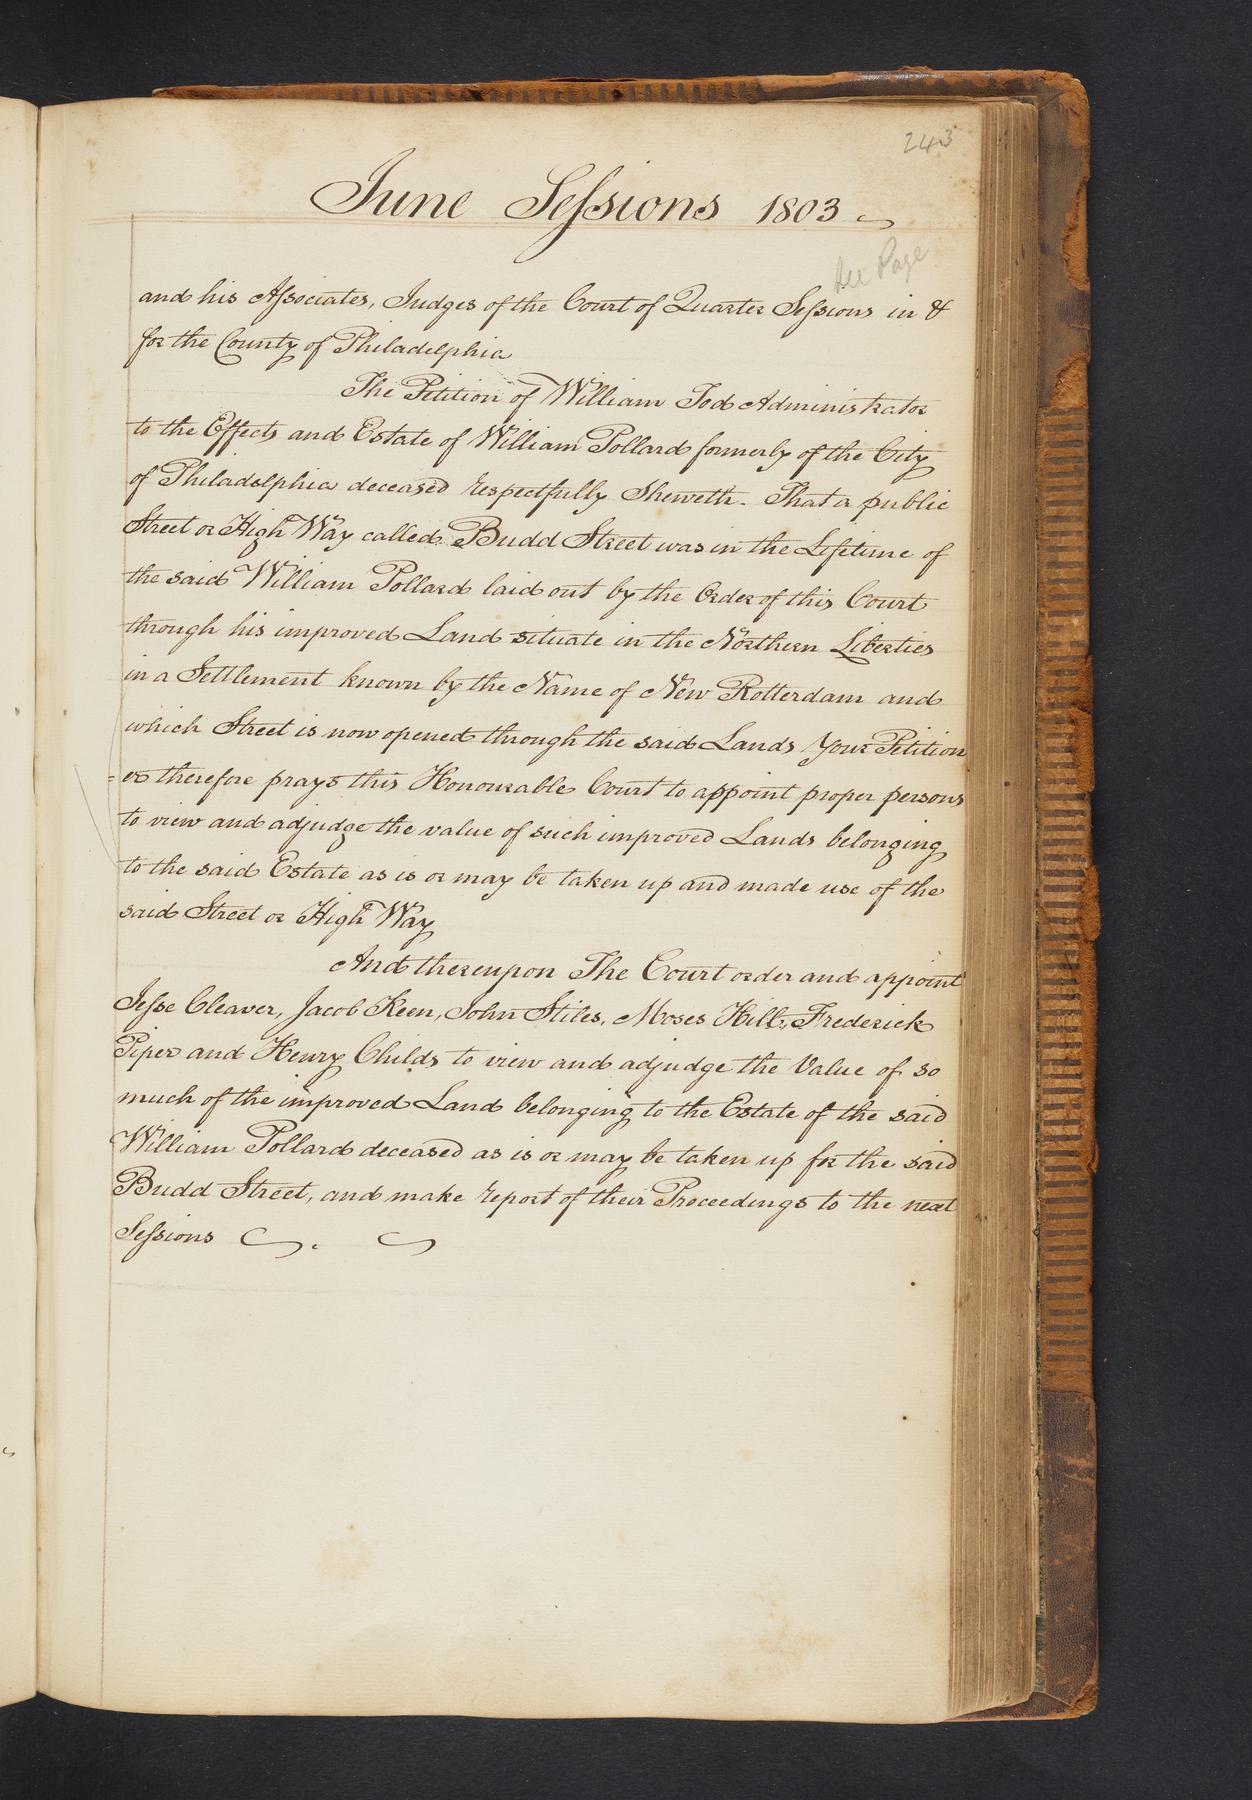 243
June Sessions 1803
See Page
and his Associates, Judges of the Court of Quarter Sessions in &
for the County of Philadelphia
The Petition of William Tod Administrator
to the Effects and Estate of William Pollard formerly of the City
of Philadelphia deceased respectfully Sheweth. That a public
Street or High Way called Budd Street was in the Lifetime of
the said William Pollard laid out by the Order of this Court
through his improved Land situate in the Northern Liberties
in a Settlement known by the Name of New Rotterdam and
which Street is now opened through the said Lands Your Petition
=er therefore prays this Honourable Court to appoint proper persons
to view and adjudge the value of such improved Lands belonging
to the said Estate as is or may be taken up and made use of the
said Street or High Way
And thereupon The Court order and appoint
Jesse Cleaver, Jacob Keen, John Stiles, Moses Hill, Frederick
Piper and Henry Childs to view and adjudge the Value of so
much of the improved Land belonging to the Estate of the said
William Pollard deceased as is or may be taken up for the said
Budd Street, and make report of their Proceedings to the next
Sessions